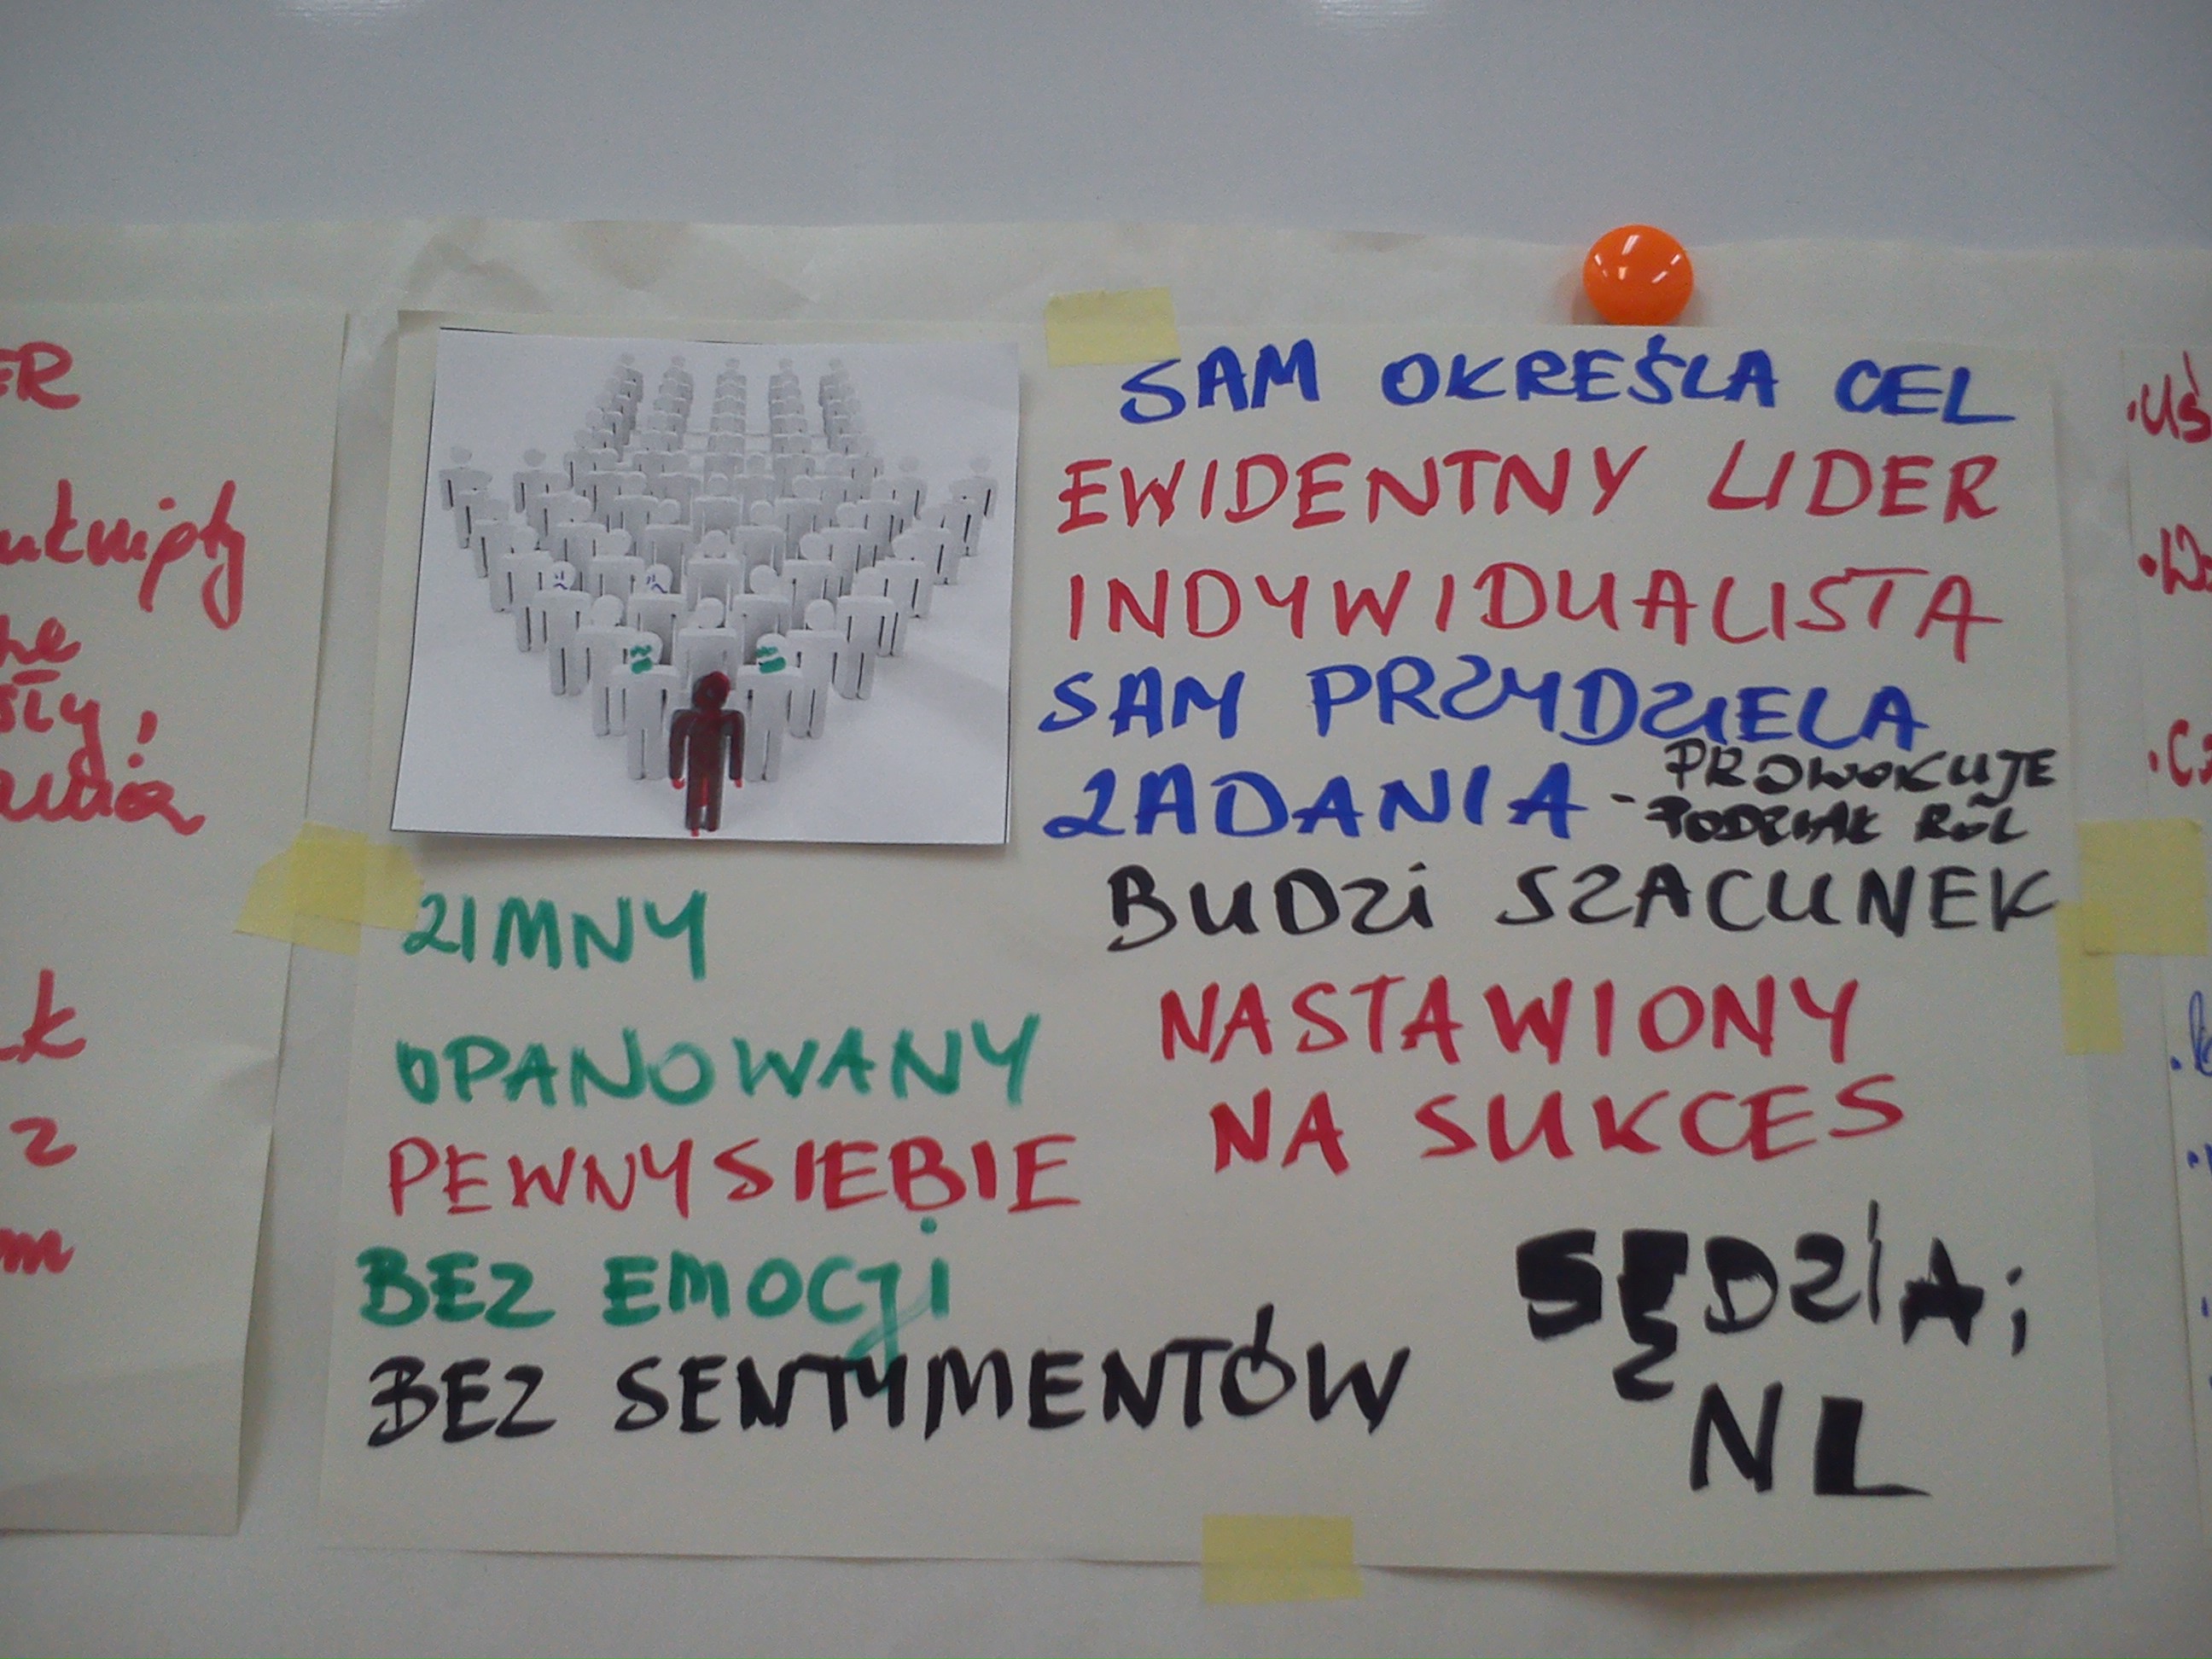 ER
SAM OKREŚLA CEL
EWIDENTNY LIDER
INDYWIDUALISTA
SAM PRZYDZIELA
ZADANIA - PROWOKUJE
PODZIAŁ RÓL
BUDZI SZACUNEK
NASTAWIONY
NA SUKCES
ZIMNY
OPANOWANY
PEWNY SIEBIE
BEZ EMOCJI
BEZ SENTYMENTÓW
SĘDZIA;
NL